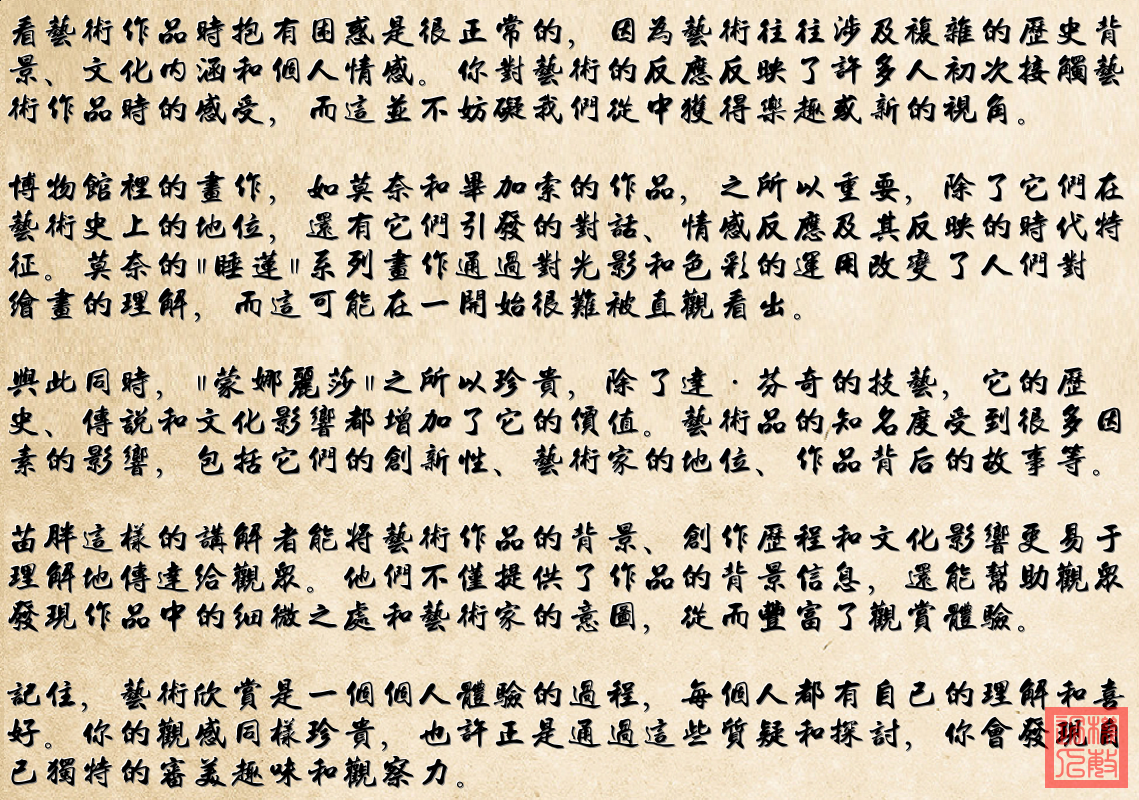 看藝術作品時抱有困惑是很正常的，因為藝術往往涉及複雜的歷史背
景、文化內涵和個人情感。你對藝術的反應反映了許多人初次接觸藝
術作品時的感受，而這並不妨礙我們從中獲得樂趣或新的視角。
博物館裡的畫作，如莫奈和畢加索的作品，之所以重要，除了它們在
藝術史上的地位，還有它們引發的對話、情感反應及其反映的時代特
征。莫奈的"睡蓮"系列畫作通過對光影和色彩的運用改變了人們對
繪畫的理解，而這可能在一開始很難被直觀看出。
與此同時，"蒙娜麗莎"之所以珍貴，除了達·芬奇的技藝，它的歷
史、傳說和文化影響都增加了它的價值。藝術品的知名度受到很多因
素的影響，包括它們的創新性、藝術家的地位、作品背后的故事等。
苗胖這樣的講解者能將藝術作品的背景、創作歷程和文化影響更易于
理解地傳達給觀眾。他們不僅提供了作品的背景信息，還能幫助觀眾
發現作品中的細微之處和藝術家的意圖，從而豐富了觀賞體驗。
記住，藝術欣賞是一個個人體驗的過程，每個人都有自己的理解和喜
好。你的觀感同樣珍貴，也許正是通過這些質疑和探討，你會發現自
己獨特的審美趣味和觀察力。